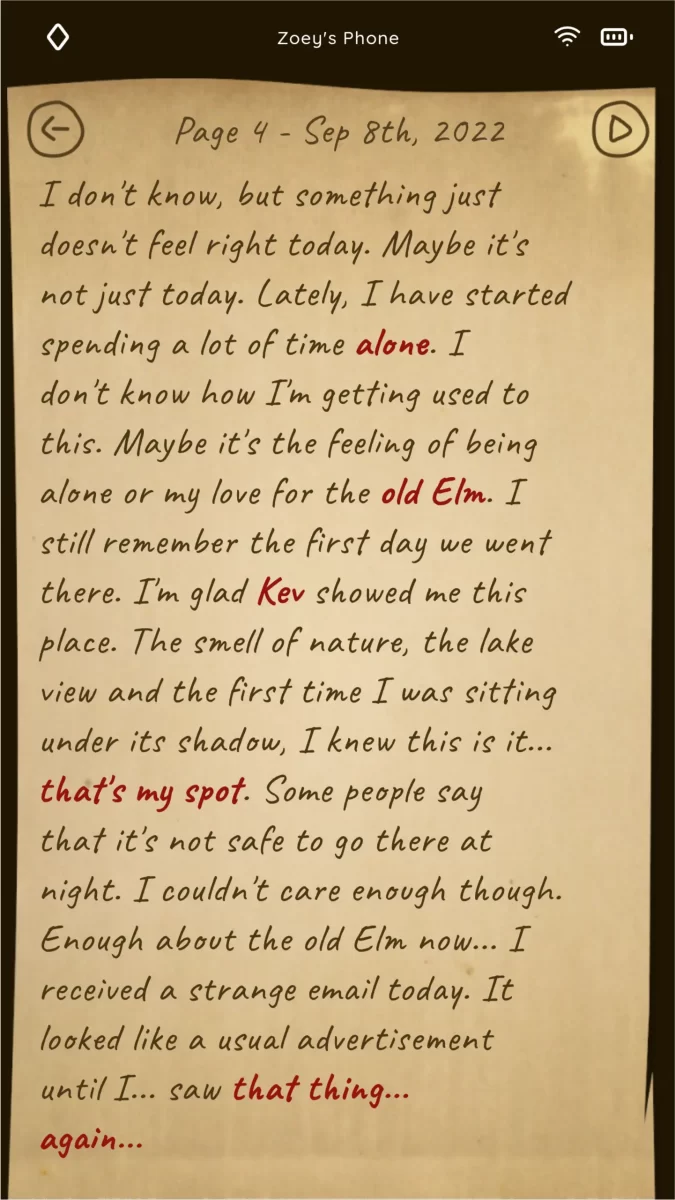 Zoey's Phone
Page 4 - Sep 8th, 2022
I don't know, but something just
doesn't feel right today. Maybe it's
not just today. Lately, I have started
spending a lot of time alone. I
don't know how I'm getting used to
this. Maybe it's the feeling of being
alone or my love for the old Elm. I
still remember the first day we went
there. I'm glad Kev showed me this
place. The smell of nature, the lake
view and the first time I was sitting
under its shadow, I knew this is it...
that's my spot. Some people say
that it's not safe to go there at
night. I couldn't care enough though.
Enough about the old Elm now... I
received a strange email today. It
looked like a usual advertisement
until I... saw that thing...
again...